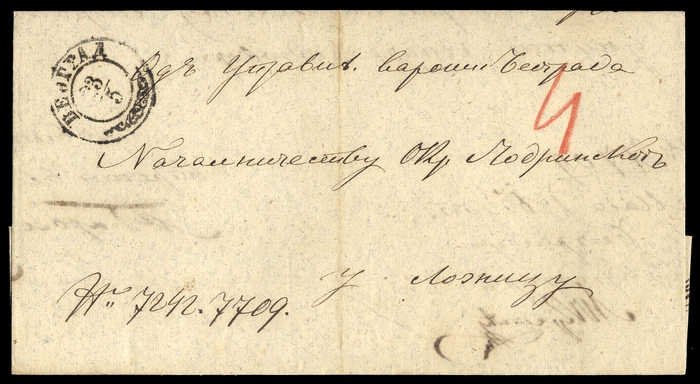 БЕОГРАД
23/5
Одъ Управит. вароши Београда
4
Началничеству Окр. Подринскогъ
у Лозницу
№ 7242. 7709.